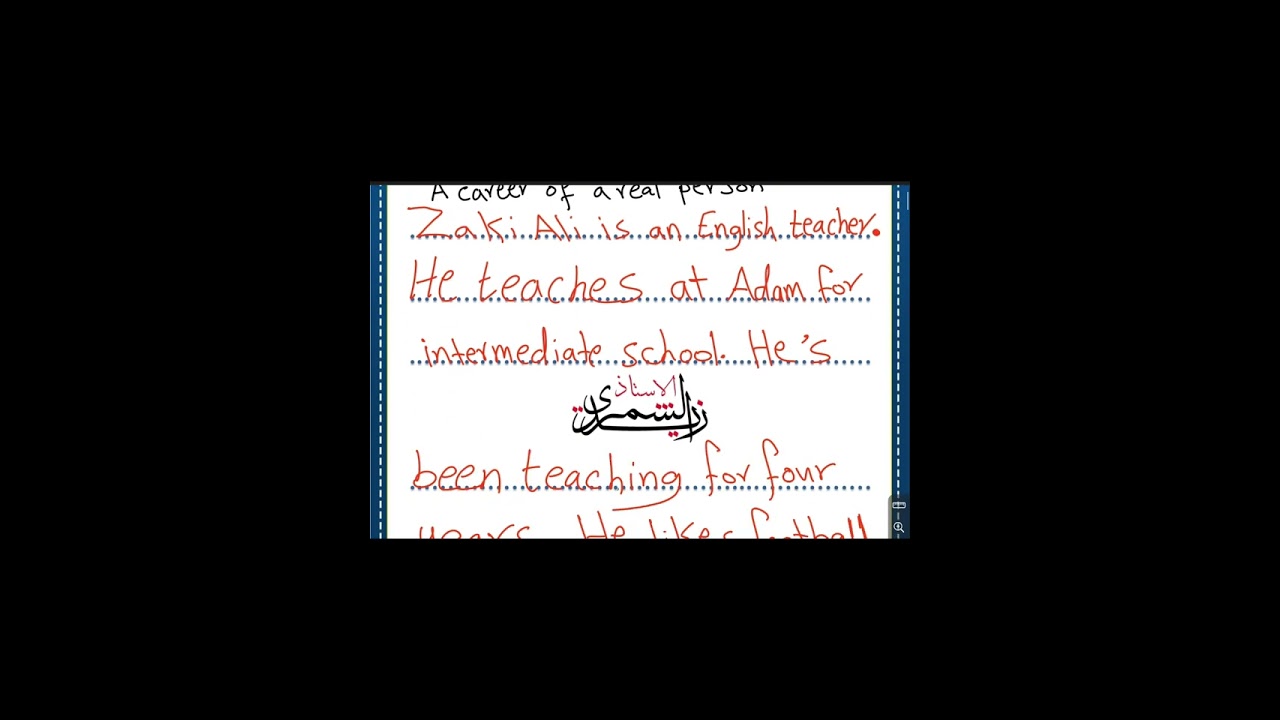 A career of a real person
Zaki Ali is an English teacher.
He teaches at Adam for
intermediate school. He's
الاستاذ
been teaching for four
years. He likes football